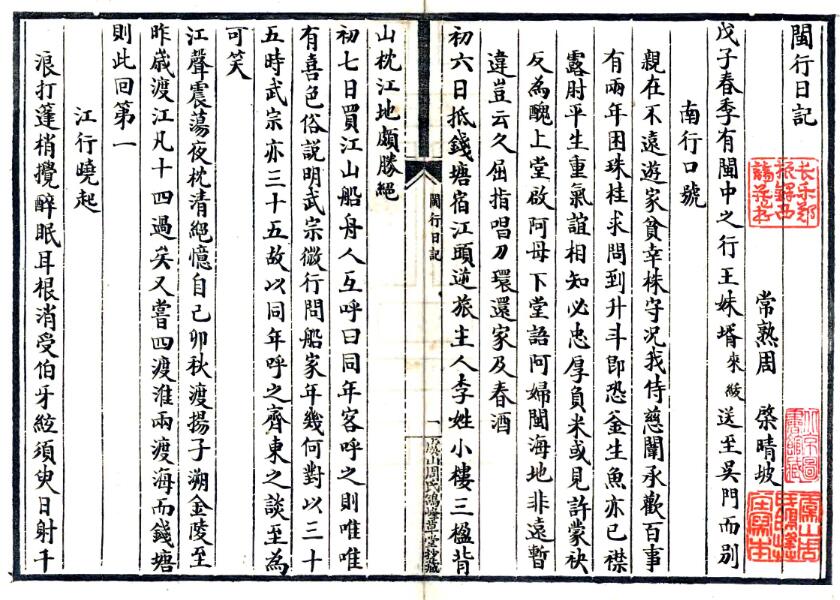 閩行日記
常熟周 棨晴坡
戊子春季有閩中之行王妹壻來綏送至吳門而別
南行口號
親在不遠遊家貧幸株守况我侍慈闈承歡百事
有兩年困珠桂求問到升斗卽恐釜生魚亦已襟
露肘平生重氣誼相知必忠厚負米或見許蒙袂
反為醜上堂啟阿母下堂語阿婦閩海地非遠暫
違豈云久屈指唱刀環還家及春酒
初六日抵錢塘宿江頭逆旅主人李姓小樓三楹背
閩行日記
一
虞山周氏鴿峰草堂鈔藏
山枕江地頗勝絕
初七日買江山船舟人互呼曰同年客呼之則唯唯
有喜色俗說明武宗微行問船家年幾何對以三十
五時武宗亦三十五故以同年呼之齊東之談至為
可笑
江聲震蕩夜枕清絕憶自己卯秋渡揚子溯金陵至
昨歲渡江凡十四過矣又嘗四渡淮兩渡海而錢塘
則此回第一
江行曉起
浪打篷梢攪醉眠耳根消受伯牙絃須臾日射千